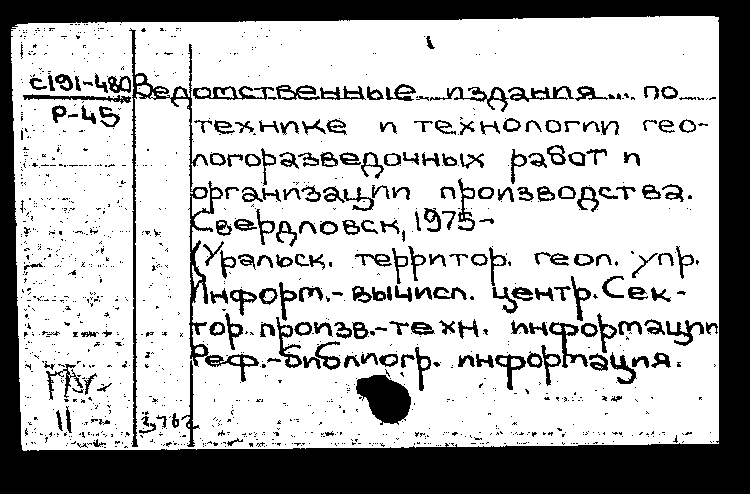 С191-480 Ведомственные издания... по
Р-45 технике и технологии гео-
логоразведочных работ и
организации производства.
Свердловск, 1975-
(Уральск. территор. геол. упр.
Информ.-вычисл. центр. Сек-
тор произв.-техн. информации
Реф.-библиогр. информация.
II 3762